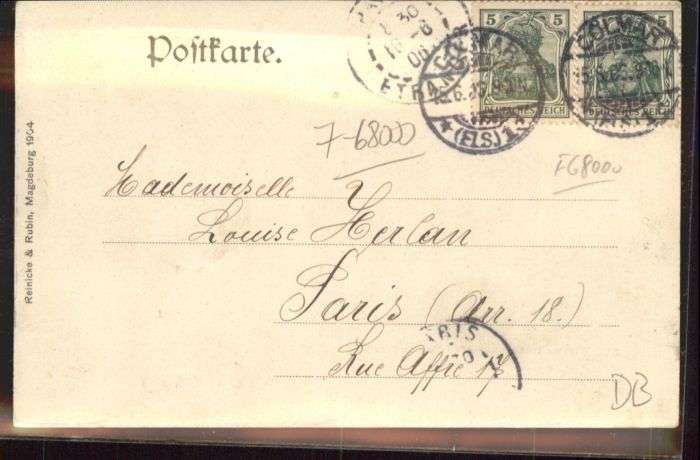 Postkarte.
5 5
COLMAR
COLMAR
(ELS) 1
DEUTSCHES REICH
REICH
7-68000
F68000
Mademoiselle
Louise Herlan
Paris (Arr. 18.)
PARIS
Rue Affre 17
DB
Reinicke & Rubin, Magdeburg 1904